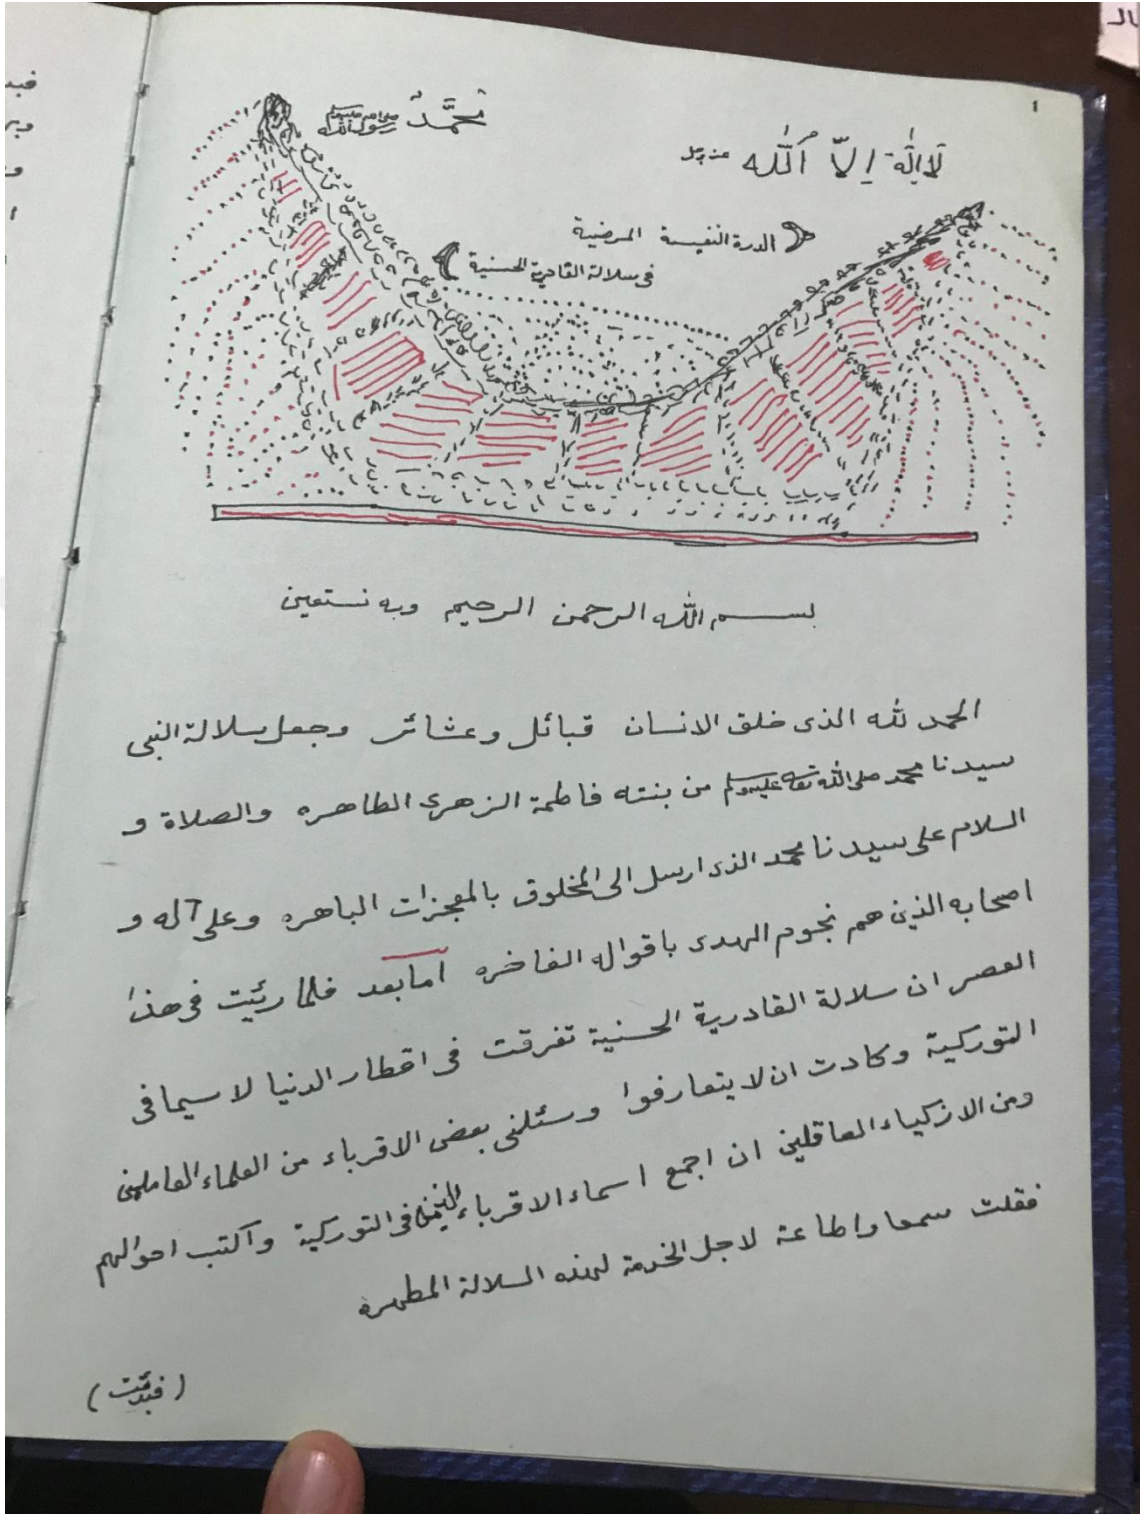 ١
لَا اِلٰهَ اِلاَّ اَللّٰه عزوجل
مُحَمَّدْ رسول الله
الدرة النفيسة المرضية
فى سلالة القادرية الحسنية
بسم اللّٰه الرحمن الرحيم وبه نستعين
الحمد لله الذى خلق الانسان قبائل وعشائر وجعل سلالة النبى
سيدنا محمد صلى الله تعالى عليه وسلم من بنته فاطمة الزهرى الطاهره والصلاة و
السلام على سيدنا محمد الذى ارسل الى المخلوق بالمعجزات الباهره وعلى آله و
اصحابه الذين هم نجوم الهدى باقواله الفاخره اما بعد فلما رئيت فى هذا
العصر ان سلالة القادرية الحسنية تفرقت فى اقطار الدنيا لا سيما فى
التوركية وكادت ان لا يتعارفوا وسئلنى بعض الاقرباء من العلماء العاملين
ومن الازكياء العاقلين ان اجمع اسماء الاقرباء الذين فى التوركية واكتب احوالهم
فقلت سمعا واطاعة لاجل الخدمة لهذه السلالة المطهره
(فبدئت)